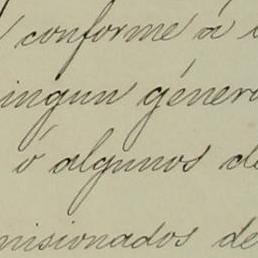 conforme á
ningun géner
ó algunos de
misionados de